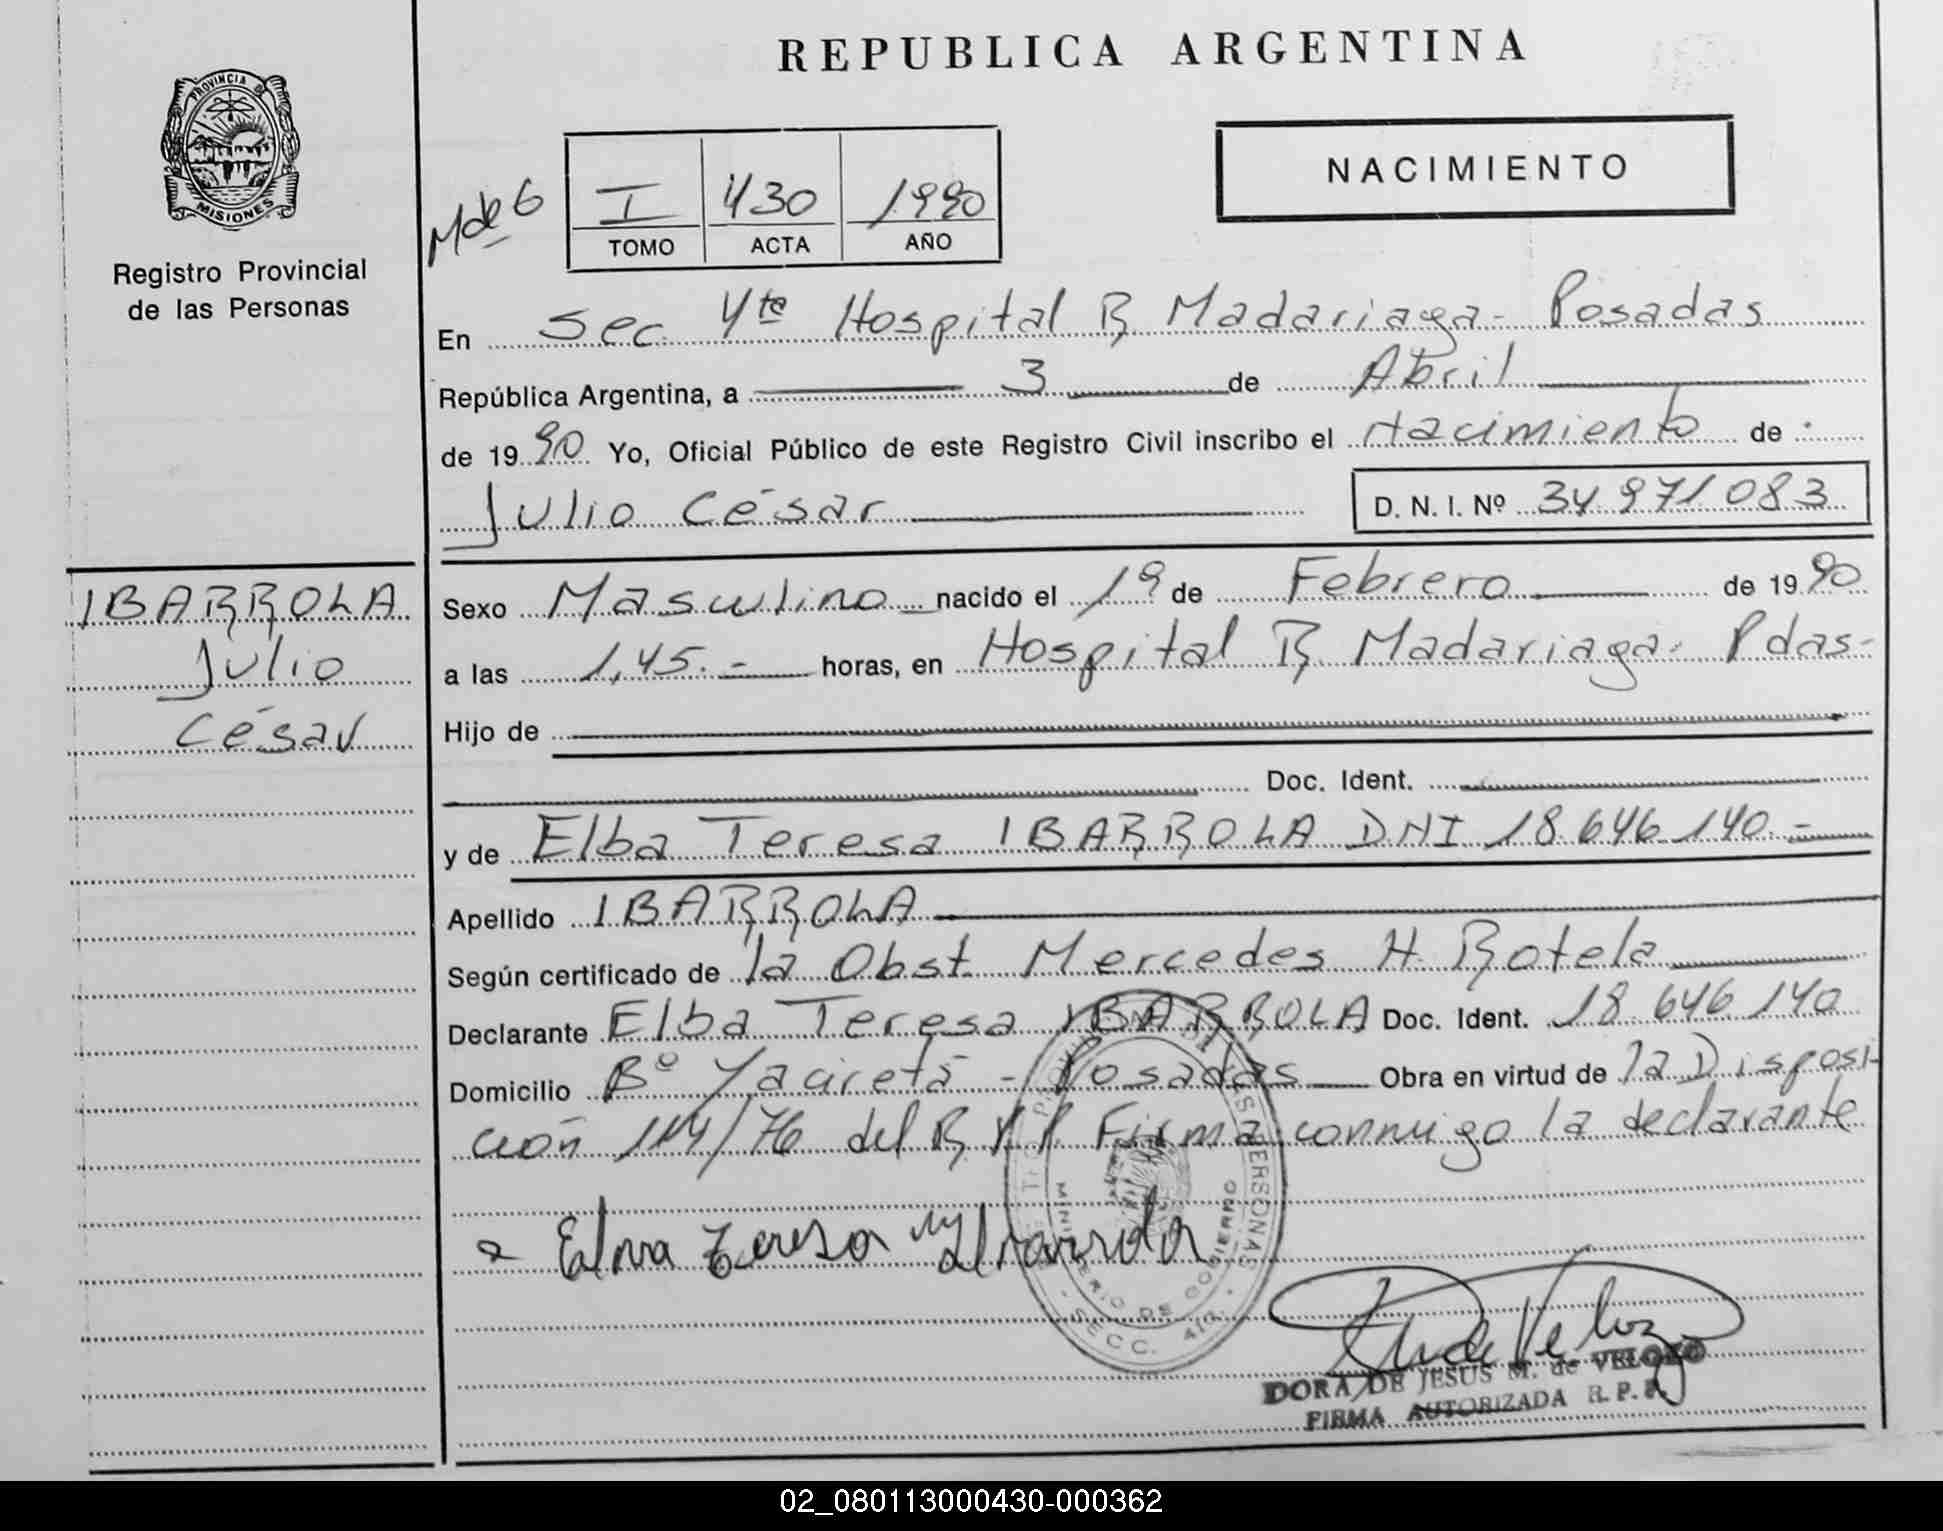 REPUBLICA ARGENTINA
PROVINCIA DE
MISIONES
Registro Provincial
de las Personas
NACIMIENTO
Mde 6
I 430 1990
TOMO ACTA AÑO
En Sec 4ta Hospital R. Madariaga - Posadas
República Argentina, a 3 de Abril
de 1990 Yo, Oficial Público de este Registro Civil inscribo el Nacimiento de
Julio César D. N. I. Nº 34 971 083
IBARROLA
Julio
César
Sexo Masculino nacido el 1º de Febrero de 1990
a las 1,45.- horas, en Hospital R. Madariaga - Pdas-
Hijo de
Doc. Ident.
y de Elba Teresa IBARROLA DNI 18.646.140.-
Apellido IBARROLA
Según certificado de la Obst. Mercedes H. Rotela
Declarante Elba Teresa IBARROLA Doc. Ident. 18.646.140
Domicilio Bº Yacireta - Posadas Obra en virtud de la Disposi-
ción 114/76 del R.P.P. Firma conmigo la declarante
Elva Teresa
MINISTERIO DE GOBIERNO
PERSONAS
SECC. 4ta.
DORA DE JESUS M. de VELOZO
FIRMA AUTORIZADA R. P. P.
02_080113000430-000362